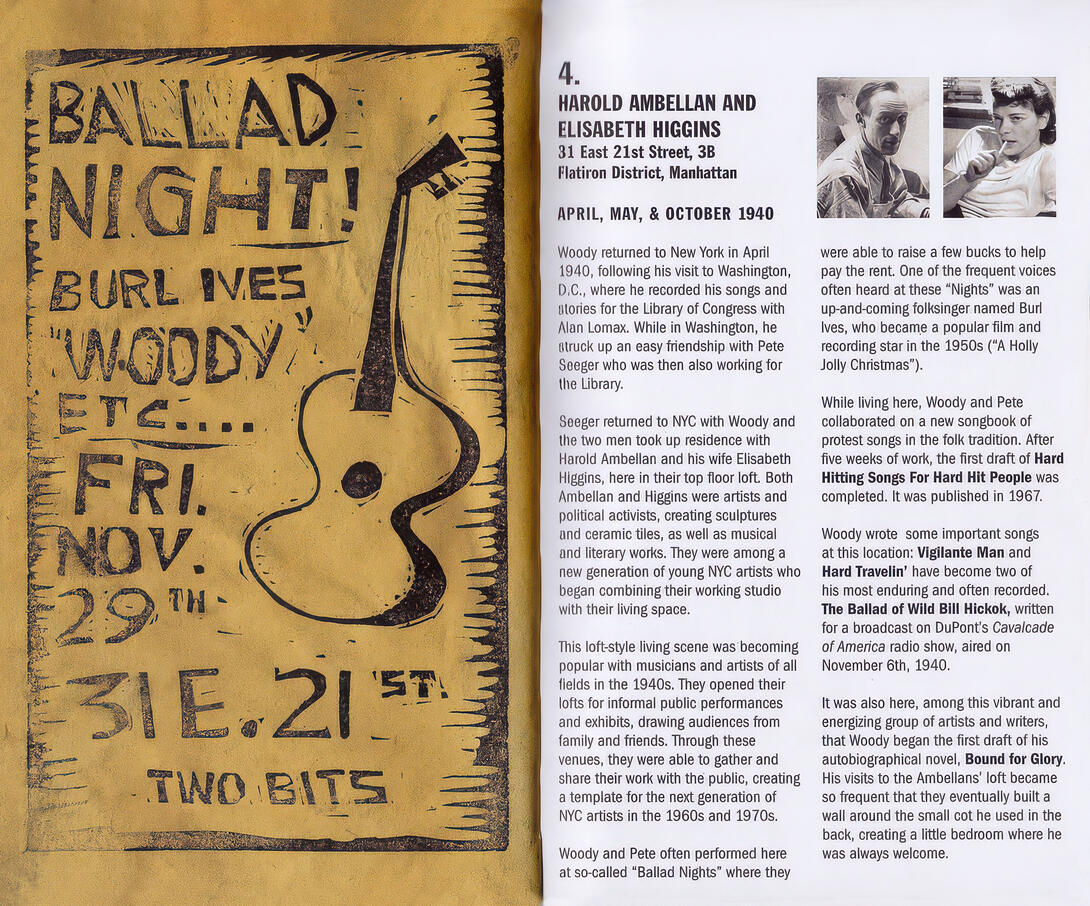 BALLAD
NIGHT!
BURL IVES
"WOODY"
ETC.....
FRI.
NOV.
29TH
31 E. 21ST.
TWO BITS
4.
HAROLD AMBELLAN AND
ELISABETH HIGGINS
31 East 21st Street, 3B
Flatiron District, Manhattan
APRIL, MAY, & OCTOBER 1940
Woody returned to New York in April
1940, following his visit to Washington,
D.C., where he recorded his songs and
stories for the Library of Congress with
Alan Lomax. While in Washington, he
struck up an easy friendship with Pete
Seeger who was then also working for
the Library.
Seeger returned to NYC with Woody and
the two men took up residence with
Harold Ambellan and his wife Elisabeth
Higgins, here in their top floor loft. Both
Ambellan and Higgins were artists and
political activists, creating sculptures
and ceramic tiles, as well as musical
and literary works. They were among a
new generation of young NYC artists who
began combining their working studio
with their living space.
This loft-style living scene was becoming
popular with musicians and artists of all
fields in the 1940s. They opened their
lofts for informal public performances
and exhibits, drawing audiences from
family and friends. Through these
venues, they were able to gather and
share their work with the public, creating
a template for the next generation of
NYC artists in the 1960s and 1970s.
Woody and Pete often performed here
at so-called “Ballad Nights” where they
were able to raise a few bucks to help
pay the rent. One of the frequent voices
often heard at these “Nights” was an
up-and-coming folksinger named Burl
Ives, who became a popular film and
recording star in the 1950s (“A Holly
Jolly Christmas”).
While living here, Woody and Pete
collaborated on a new songbook of
protest songs in the folk tradition. After
five weeks of work, the first draft of Hard
Hitting Songs For Hard Hit People was
completed. It was published in 1967.
Woody wrote some important songs
at this location: Vigilante Man and
Hard Travelin’ have become two of
his most enduring and often recorded.
The Ballad of Wild Bill Hickok, written
for a broadcast on DuPont’s Cavalcade
of America radio show, aired on
November 6th, 1940.
It was also here, among this vibrant and
energizing group of artists and writers,
that Woody began the first draft of his
autobiographical novel, Bound for Glory.
His visits to the Ambellans’ loft became
so frequent that they eventually built a
wall around the small cot he used in the
back, creating a little bedroom where he
was always welcome.